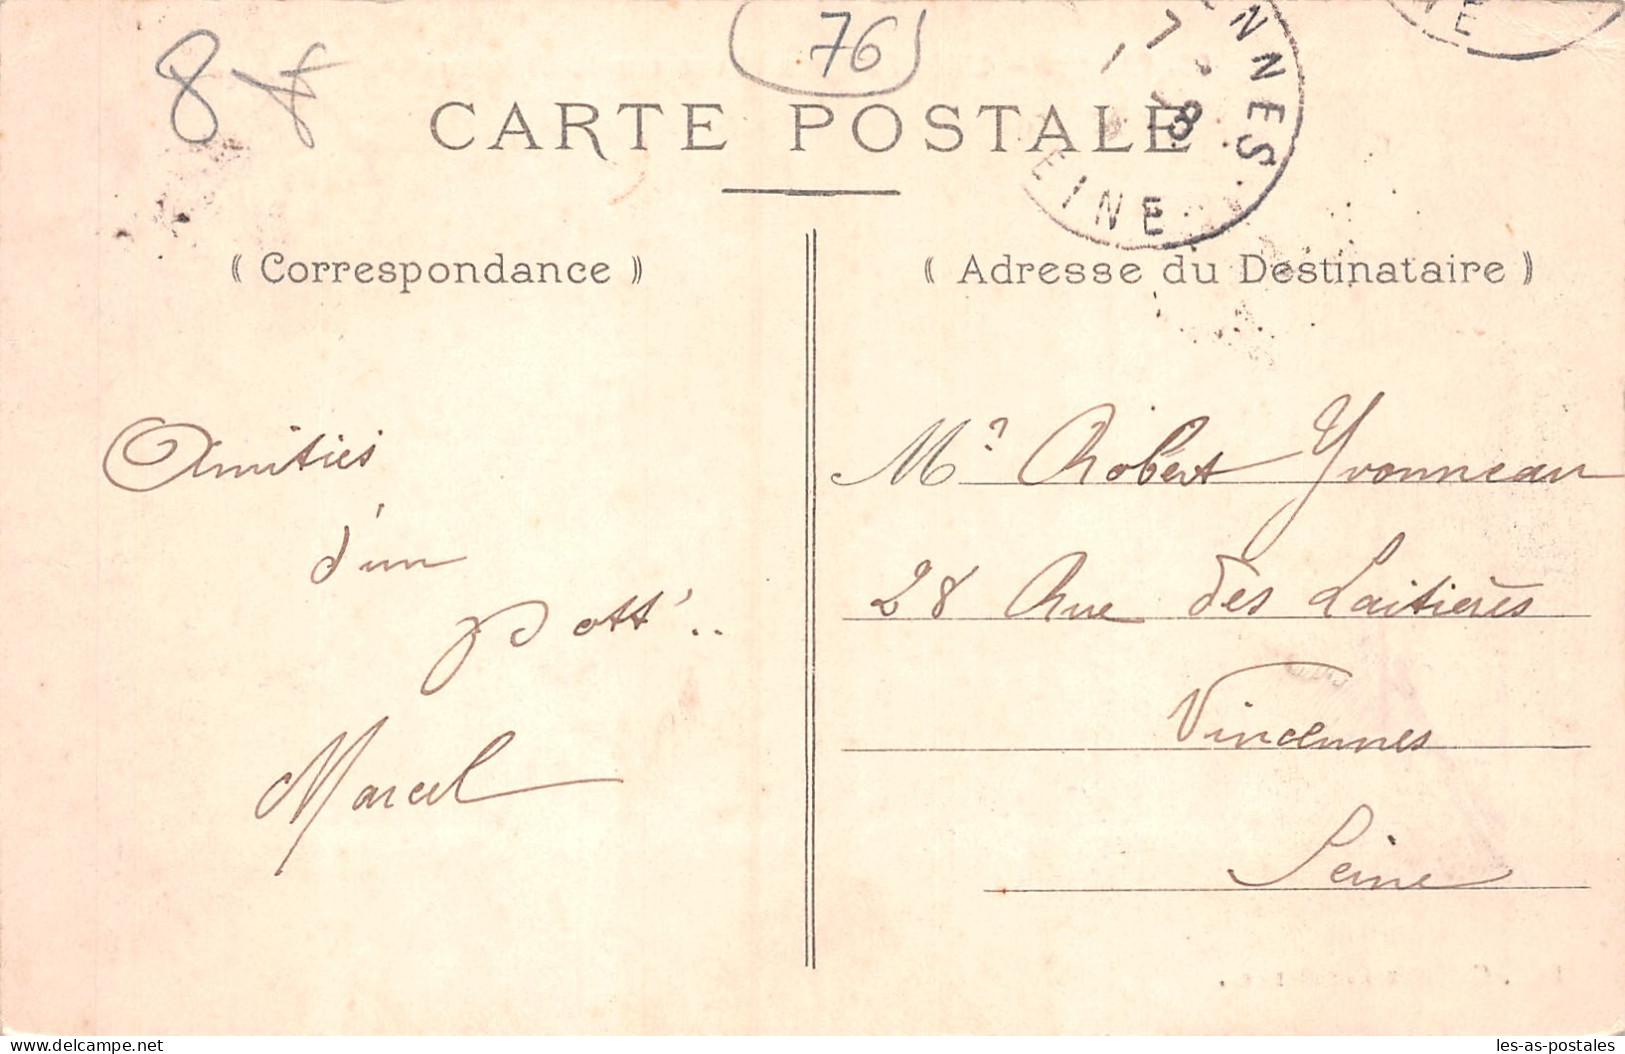 8
76
NNES
EINE
CARTE POSTALE
( Correspondance )
( Adresse du Destinataire )
Amitiés
d'un
pott'..
Marcel
Mr Robert Yvonneau
28 Rue des Laitières
Vincennes
Seine
delcampe.net
les-as-postales